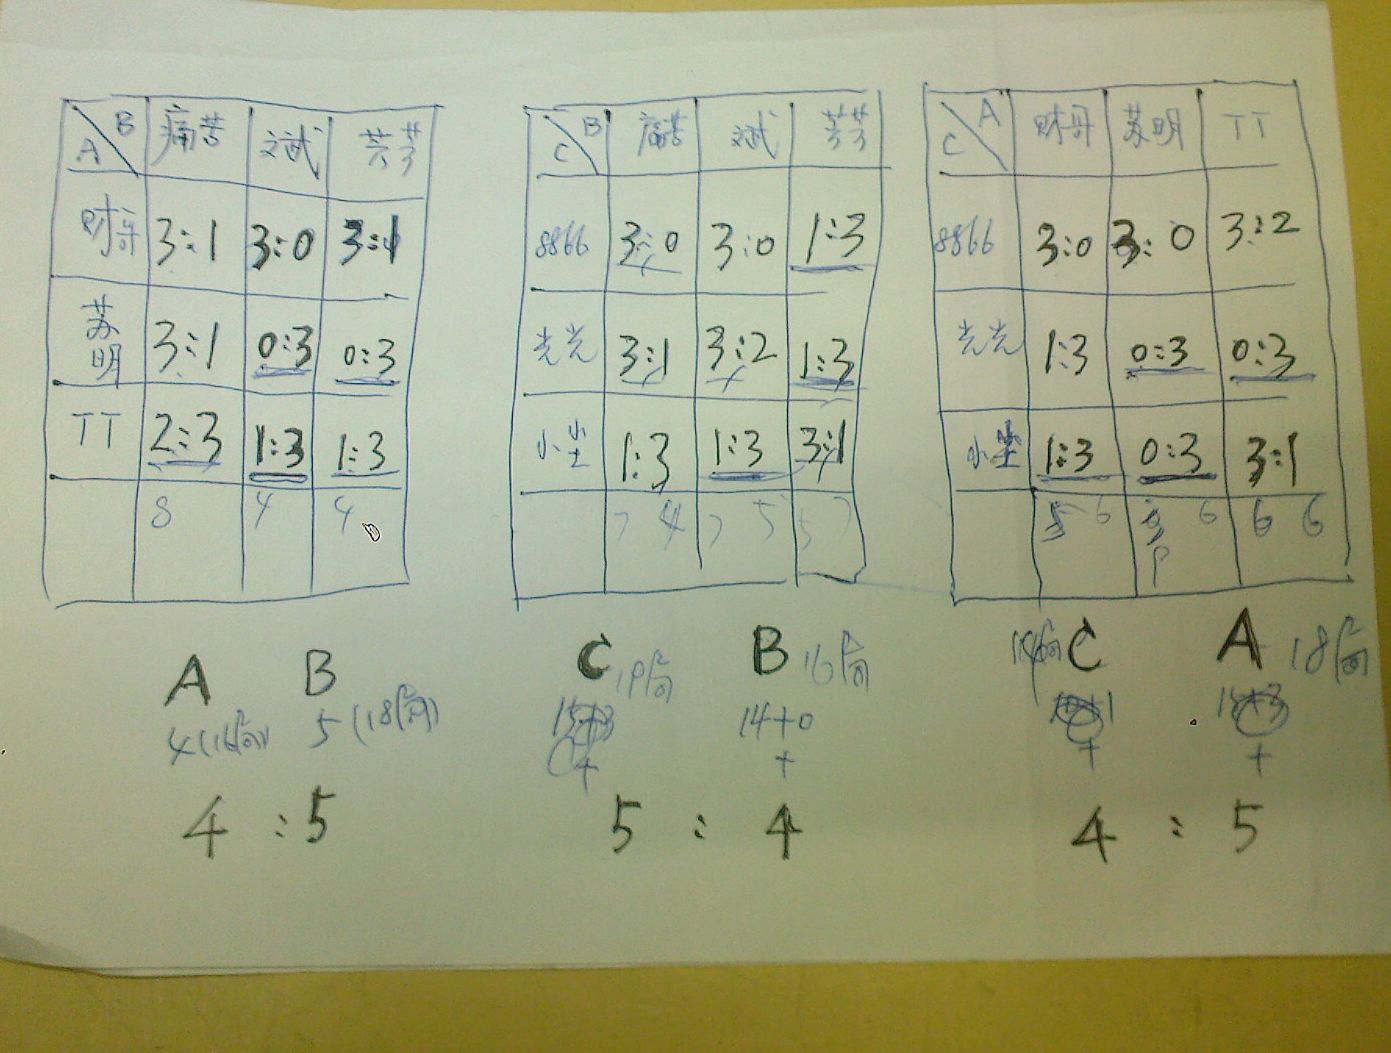 B 痛苦 文斌 芳芳
A
财哥 3:1 3:0 3:1
苏明 3:1 0:3 0:3
TT 2:3 1:3 1:3
8 4 4
A B
5 (18局)
4 : 5
B 痛苦 文斌 芳芳
C
8866 3:0 3:0 1:3
光光 3:1 3:2 1:3
小尘 1:3 1:3 3:1
7 4 7 5 5 7
C 19局 B 16局
14+0
+ +
5 : 4
A 财哥 苏明 TT
C
8866 3:0 3:0 3:2
光光 1:3 0:3 0:3
小尘 1:3 0:3 3:1
6 6 6 6
C A 18局
+ +
4 : 5